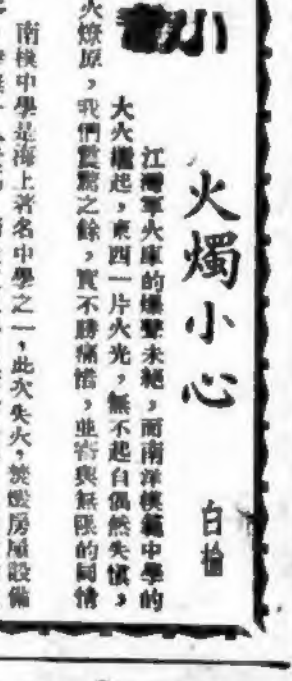 火燭小心
白榆
江灣軍火庫的爆擊未絕,而南洋模範中學的
大火繼起,東西一片火光,無不起自偶然失慎,
火燎原,我們驚駭之餘,實不勝痛惜,並寄與無限的同情
南模中學是海上著名中學之一,此次失火,焚燬房屋設備